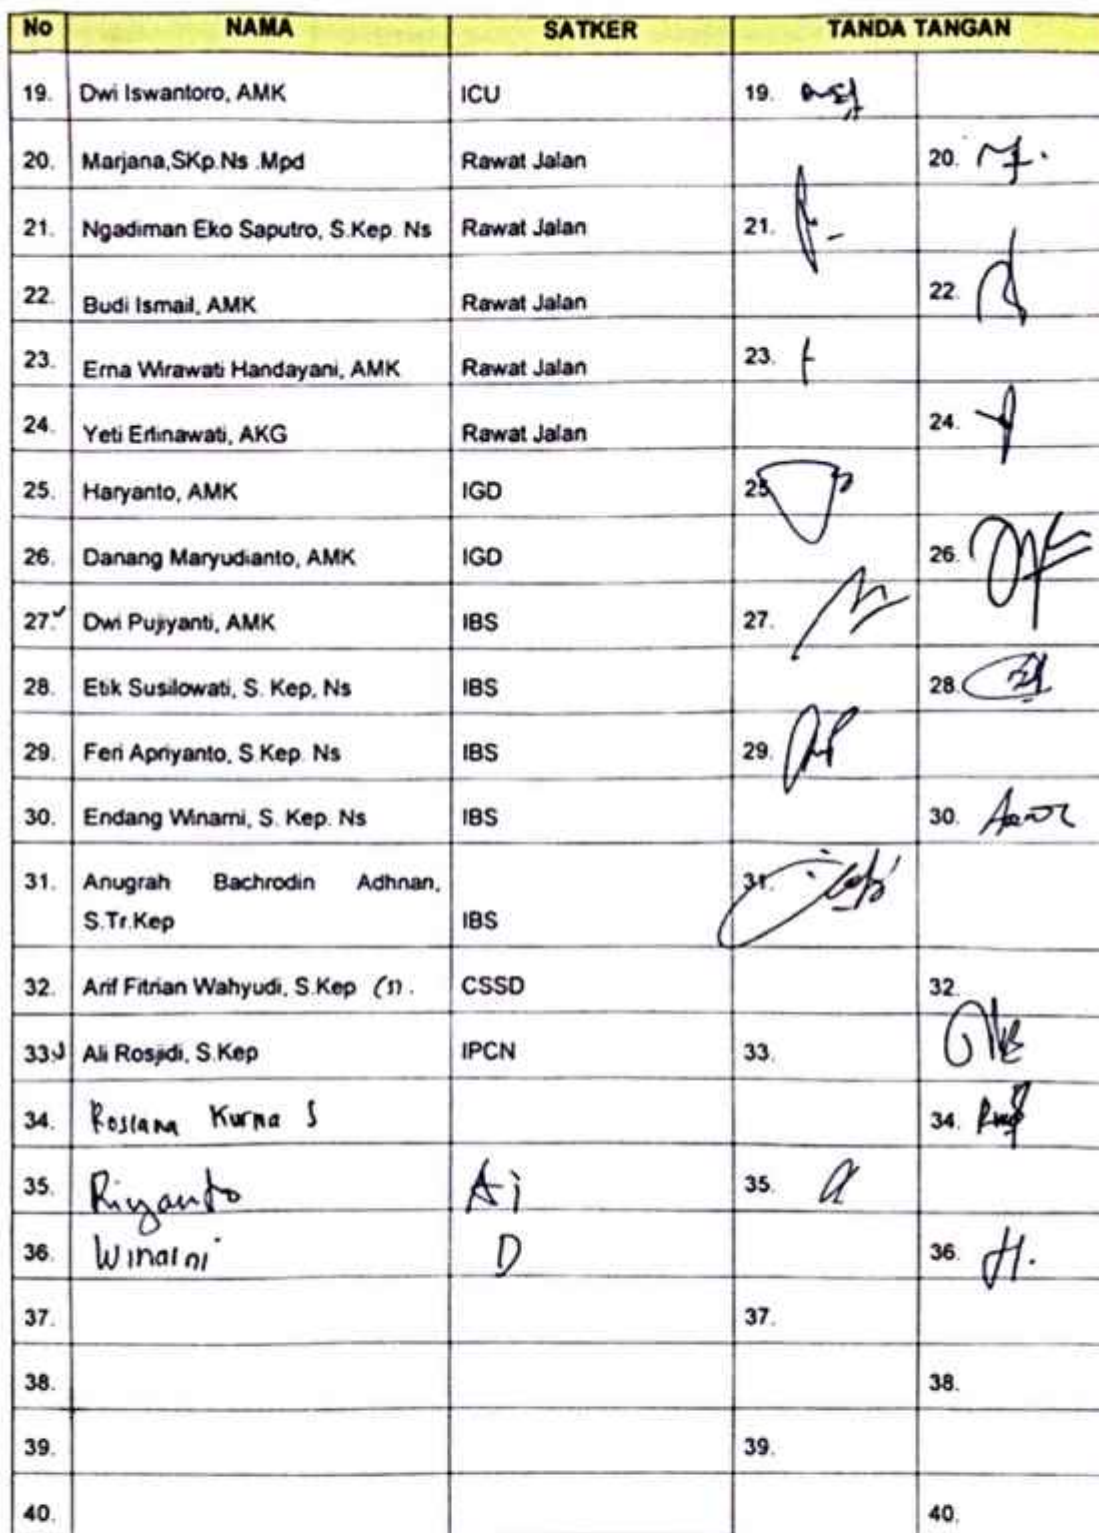 No NAMA SATKER TANDA TANGAN
19. Dwi Iswantoro, AMK ICU 19.
20. Marjana,SKp.Ns .Mpd Rawat Jalan 20.
21. Ngadiman Eko Saputro, S.Kep. Ns Rawat Jalan 21.
22. Budi Ismail, AMK Rawat Jalan 22.
23. Erna Wirawati Handayani, AMK Rawat Jalan 23.
24. Yeti Erlinawati, AKG Rawat Jalan 24.
25. Haryanto, AMK IGD 25
26. Danang Maryudianto, AMK IGD 26.
27. Dwi Pujiyanti, AMK IBS 27.
28. Etik Susilowati, S. Kep, Ns IBS 28.
29. Feri Apriyanto, S.Kep. Ns IBS 29.
30. Endang Winarni, S. Kep. Ns IBS 30.
31. Anugrah Bachrodin Adhnan, 31.
S.Tr.Kep IBS
32. Arif Fitrian Wahyudi, S.Kep CSSD 32.
33. Ali Rosjidi, S.Kep IPCN 33.
34. Roslana Kurna S 34.
35. Riyanto Ai 35.
36. Winarni D 36.
37. 37.
38. 38.
39. 39.
40. 40.